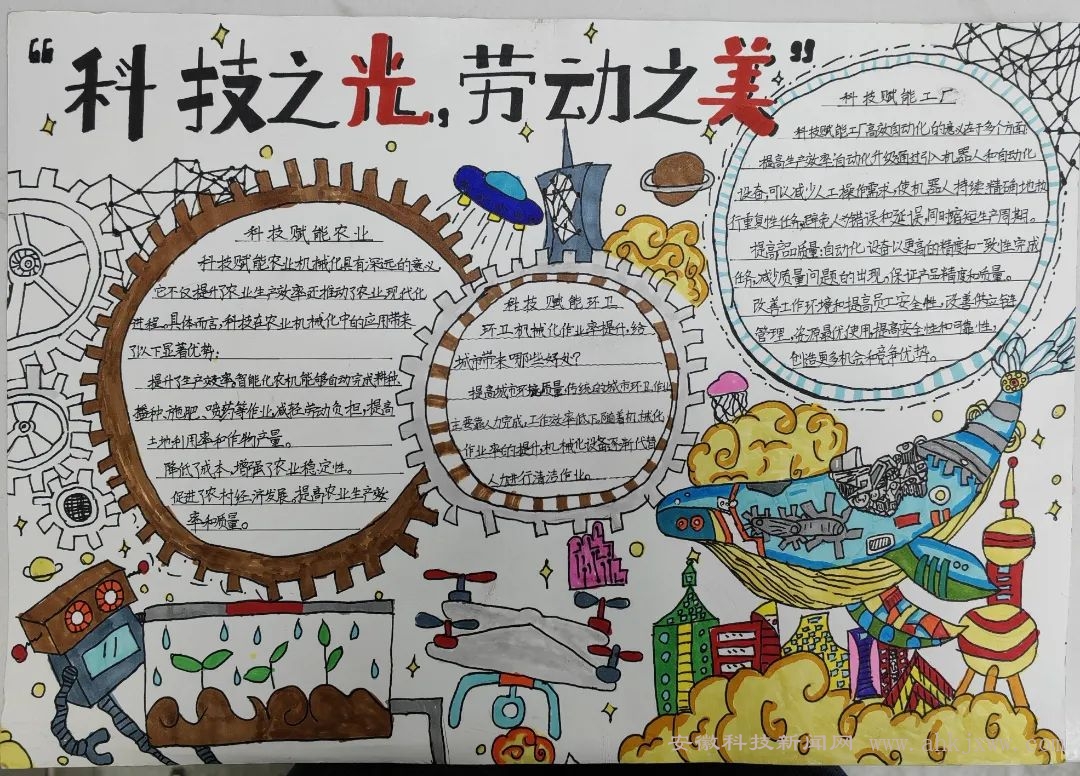 “科技之光，劳动之美”
科技赋能农业
科技赋能农业机械化具有深远的意义，
它不仅提升了农业生产效率还推动了农业现代化
进程。具体而言，科技在农业机械化中的应用带来
了以下显著优势：
提升了生产效率，智能化农机能够自动完成耕种、
播种、施肥、喷药等作业，减轻劳动负担，提高
土地利用率和作物产量。
降低了成本，增强了农业稳定性。
促进了农村经济发展，提高农业生产效
率和质量。
科技赋能环卫
环卫机械化作业率提升，给
城市带来哪些好处？
提高城市环境质量：传统的城市环卫作业
主要靠人力完成，工作效率低下，随着机械化
作业率的提升，机械化设备逐渐代替
人力进行清洁作业。
科技赋能工厂
科技赋能工厂高效自动化的意义在于多个方面：
提高生产效率：自动化升级通过引入机器人和自动化
设备，可以减少人工操作需求，使机器人持续精确地执
行重复性任务，避免人为错误和延误，同时缩短生产周期。
提高产品质量：自动化设备以更高的精度和一致性完成
任务，减少质量问题的出现，保证产品精度和质量。
改善工作环境和提高员工安全性，改善供应链
管理，资源最优使用提高安全性和可靠性，
创造更多机会和竞争优势。
安徽科技新闻网 www.ahkjxw.com